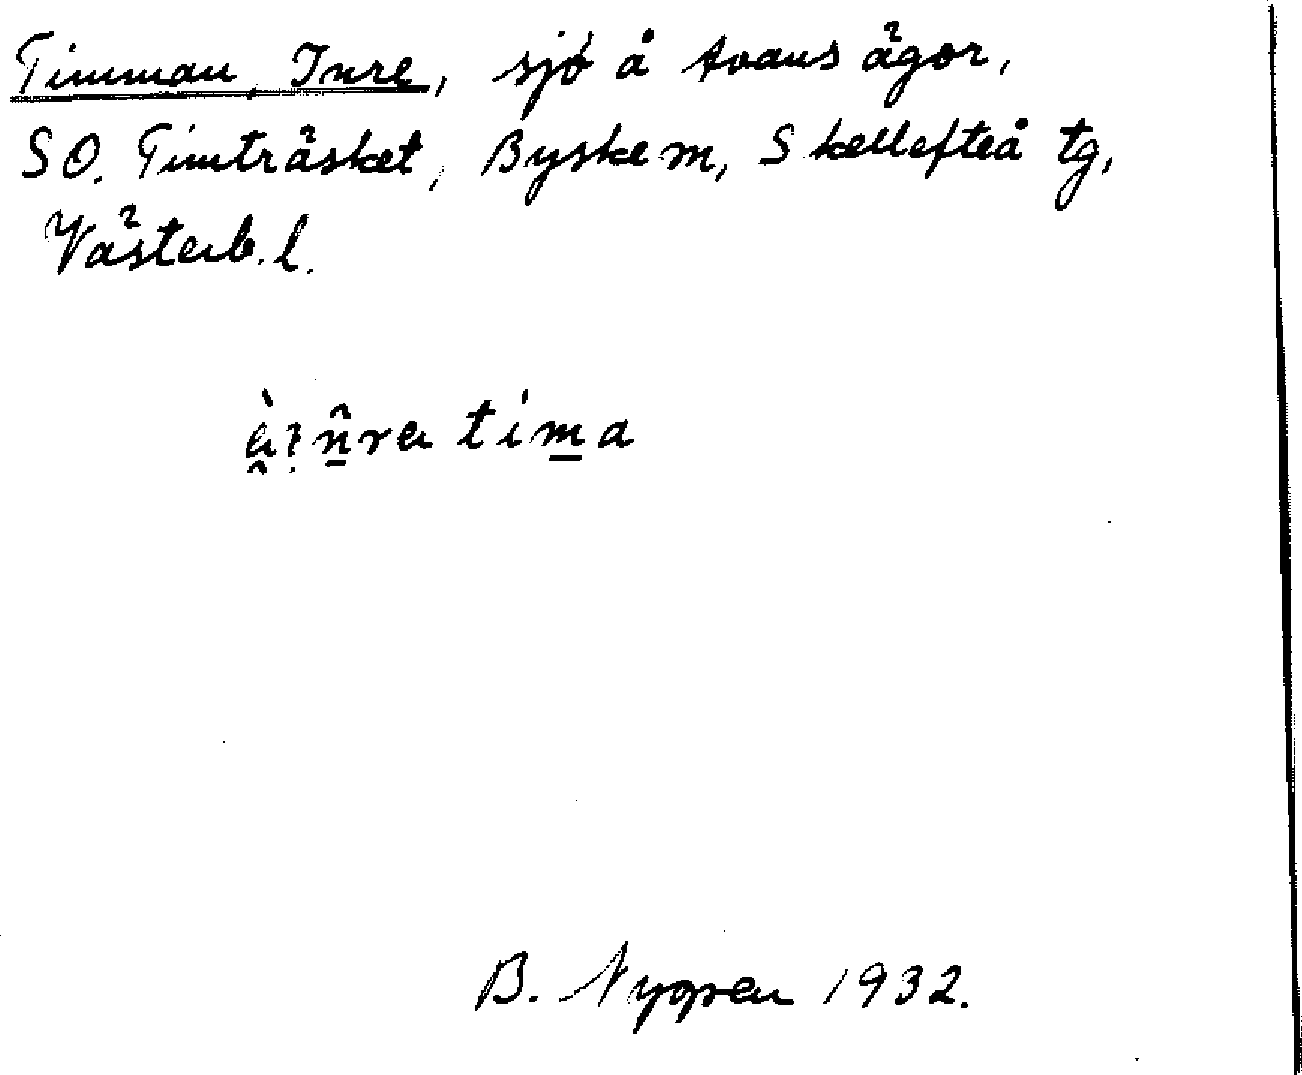 Timman, Inre, sjö å Avans ägor,
SO. Timträsket, Byske m, Skellefteå tg,
Västerb. l.
tima
B. Nygren 1932.